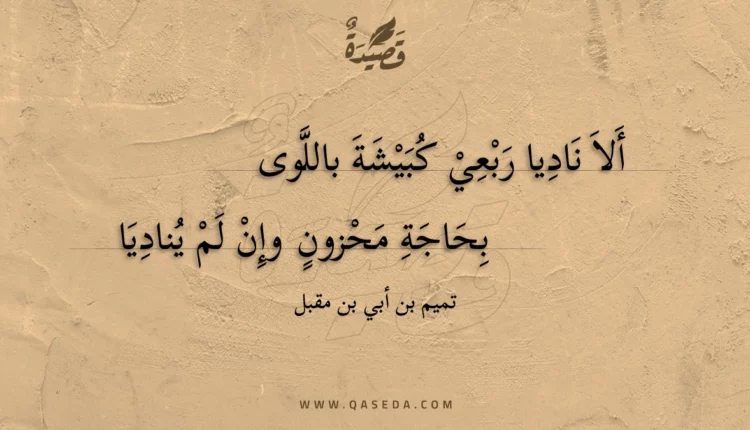 قَصِيدَةٌ
أَلاَ نَادِيا رَبْعِيْ كُبَيْشَةَ باللَّوى
بِحَاجَةِ مَحْزونٍ وإِنْ لَمْ يُنادِيَا
تميم بن أبي بن مقبل
WWW.QASEDA.COM